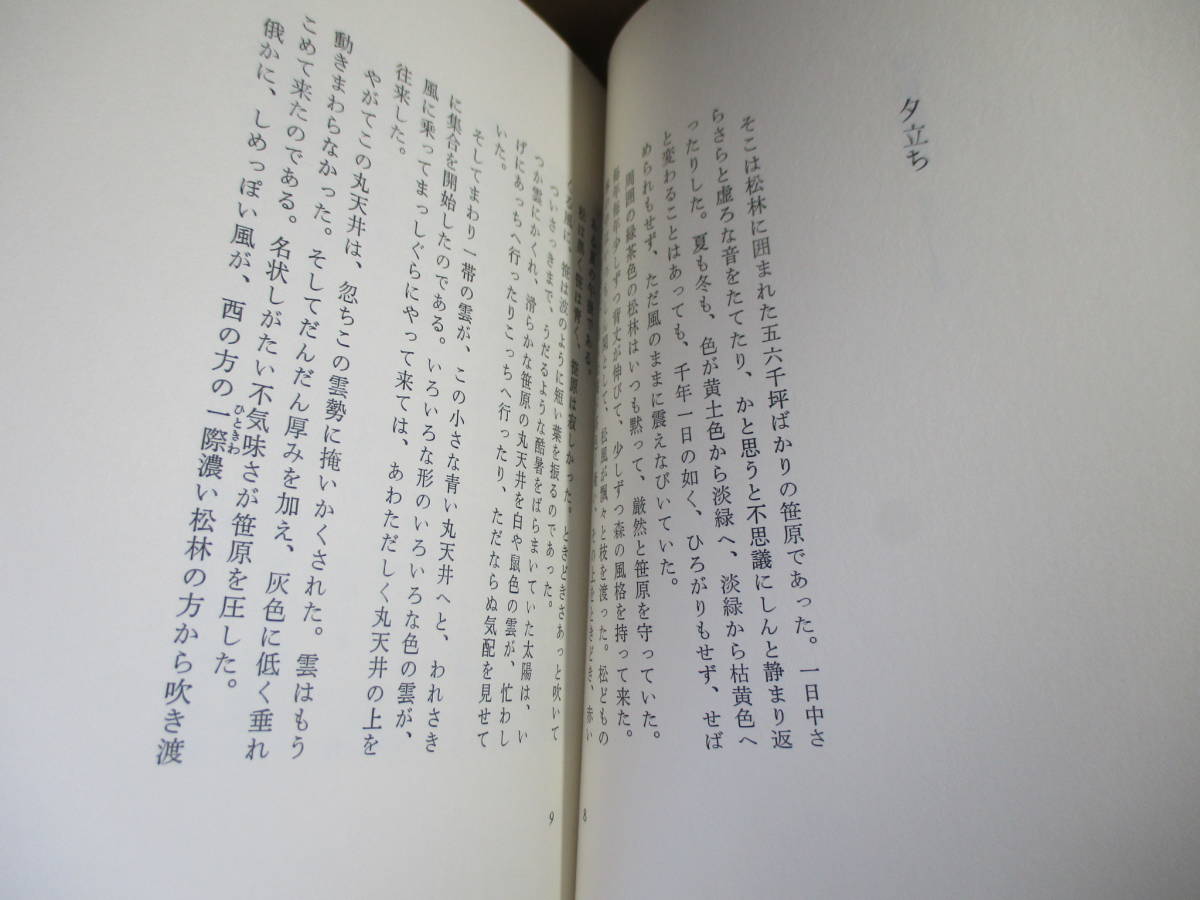 夕立ち
そこは松林に囲まれた五六千坪ばかりの笹原であった。一日中さ
らさらと虚ろな音をたてたり、かと思うと不思議にしんと静まり返
ったりした。夏も冬も、色が黄土色から淡緑へ、淡緑から枯黄色へ
と変わることはあっても、千年一日の如く、ひろがりもせず、せば
められもせず、ただ風のままに震えなびいていた。
周囲の緑茶色の松林はいつも黙って、厳然と笹原を守っていた。
毎年毎年少しずつ背丈が伸びて、少しずつ森の風格を持って来た。
として、松風が飄々と枝を渡った。松どもの
その上をときどき、赤い
である。
松は黒く笹は青く、笹原は寂しかった。ときどきさあっと吹いて
くる風に、笹は波のように短い葉を振るのであった。
ついさっきまで、うだるような酷暑をばらまいていた太陽は、い
つか雲にかくれ、滑らかな笹原の丸天井を白や鼠色の雲が、忙わし
げにあっちへ行ったりこっちへ行ったり、ただならぬ気配を見せて
いた。
そしてまわり一帯の雲が、この小さな青い丸天井へと、われさき
に集合を開始したのである。いろいろな形のいろいろな色の雲が、
風に乗ってまっしぐらにやって来ては、あわただしく丸天井の上を
往来した。
やがてこの丸天井は、忽ちこの雲勢に掩いかくされた。雲はもう
動きまわらなかった。そしてだんだん厚みを加え、灰色に低く垂れ
こめて来たのである。名状しがたい不気味さが笹原を圧した。
俄かに、しめっぽい風が、西の方の一際濃い松林の方から吹き渡
ひときわ
8
9